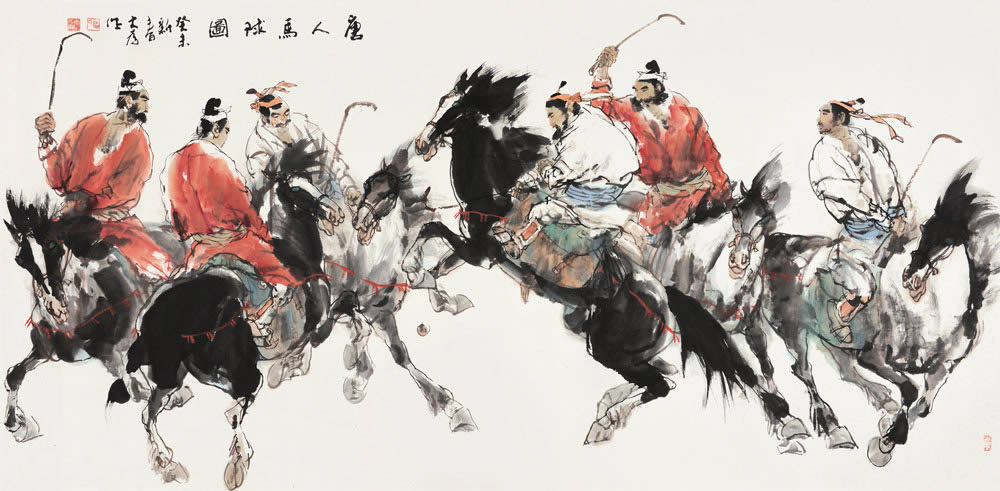 唐人馬球圖
癸未
新
大為
作